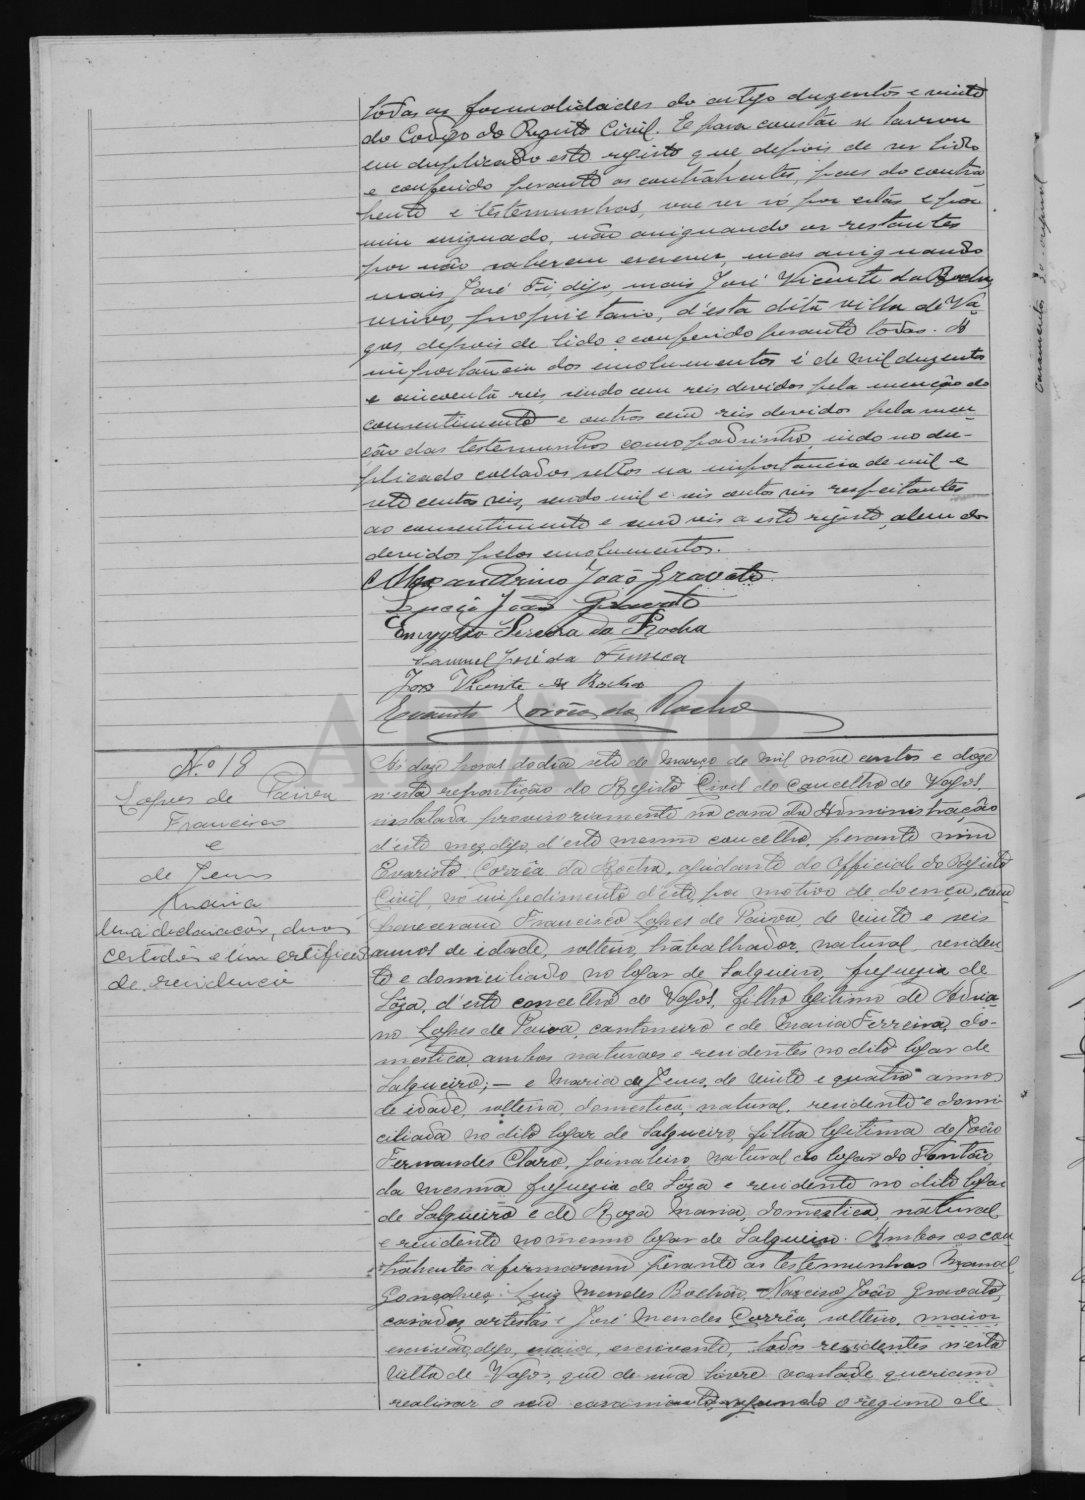 todas as formalidades do artigo duzentos e vinte
do Codigo do Registo Civil. E para constar se lavrou
em duplicado este registo que, depois de ser lido
e conferido perante os contrahentes, paes do contra-
hente e testemunhas, vae ser só por estas e por
mim assignado, não assignando os restantes
por não saberem escrever, mas assignando
mais José Fi, digo, mais José Vicente da Rocha,
viuvo, proprietario, d'esta dita villa de Va-
gos, depois de lido e conferido perante todos. A
importancia dos emolumentos é de mil duzentos
e cincoenta reis, sendo cem reis devidos pela menção do
consentimento e outros cem reis devidos pela men-
ção das testemunhas como padrinhos, indo no du-
plicado collados sellos na importancia de mil e
sete centos reis, sendo mil e seis centos reis respeitantes
ao consentimento e cem reis a este registo, alem dos
devidos pelos emolumentos.
Alexandrino João Gravato
João Gravato
Pereira da Rocha
Manuel José da Fonseca
José Vicente da Rocha
Evaristo Corrêa da Rocha
N.º 18
Lopes de Paiva
Francisco
e
de Jesus
Maria
Uma declaração, duas
certidões e um certificado
de residencia
Ás doze horas do dia sete de Março de mil nove centos e doze
n'esta repartição do Registo Civil do concelho de Vagos,
installada provisoriamente na casa da Administração
d'este mez, digo, d'este mesmo concelho, perante mim
Evaristo Corrêa da Rocha, ajudante do Official do Registo
Civil, no impedimento d'este, por motivo de doença, com-
pareceram Francisco Lopes de Paiva, de vinte e seis
annos de idade, solteiro, trabalhador, natural, residen-
te e domiciliado no logar de Salgueiro, freguezia de
Sôza, d'este concelho de Vagos, filho legitimo de Adria-
no Lopes de Paiva, cantoneiro e de Maria Ferreira, do-
mestica, ambos naturaes e residentes no dito logar de
Salgueiro; — e Maria de Jesus, de vinte e quatro annos
de idade, solteira, domestica, natural, residente e domi-
ciliada no dito logar de Salgueiro, filha legitima de João
Fernandes Claro, jornaleiro, natural do logar do Fontão
da mesma freguezia de Sôza e residente no dito logar
de Salgueiro e de Roza Maria, domestica, natural
e residente no mesmo logar de Salgueiro. Ambos os con-
trahentes affirmaram perante as testemunhas Manoel
Gonçalves, Luiz Mendes Bolhão, Narciso João Gravato,
casados, artistas e José Mendes Corrêa, solteiro, maior,
escrivão, digo, maior, escrevente, todos residentes n'esta
Villa de Vagos, que de sua livre vontade queriam
realisar o seu casamento segundo o regime de
ADAVR